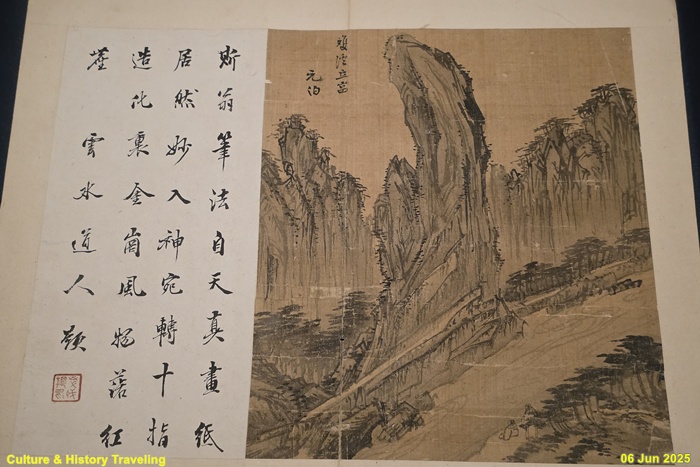 元伯
斯翁筆法自天真畫紙
居然妙入神宛轉十指
造化裏金崗風物落紅
塵
雲水道人題
Culture & History Traveling
06 Jun 2025